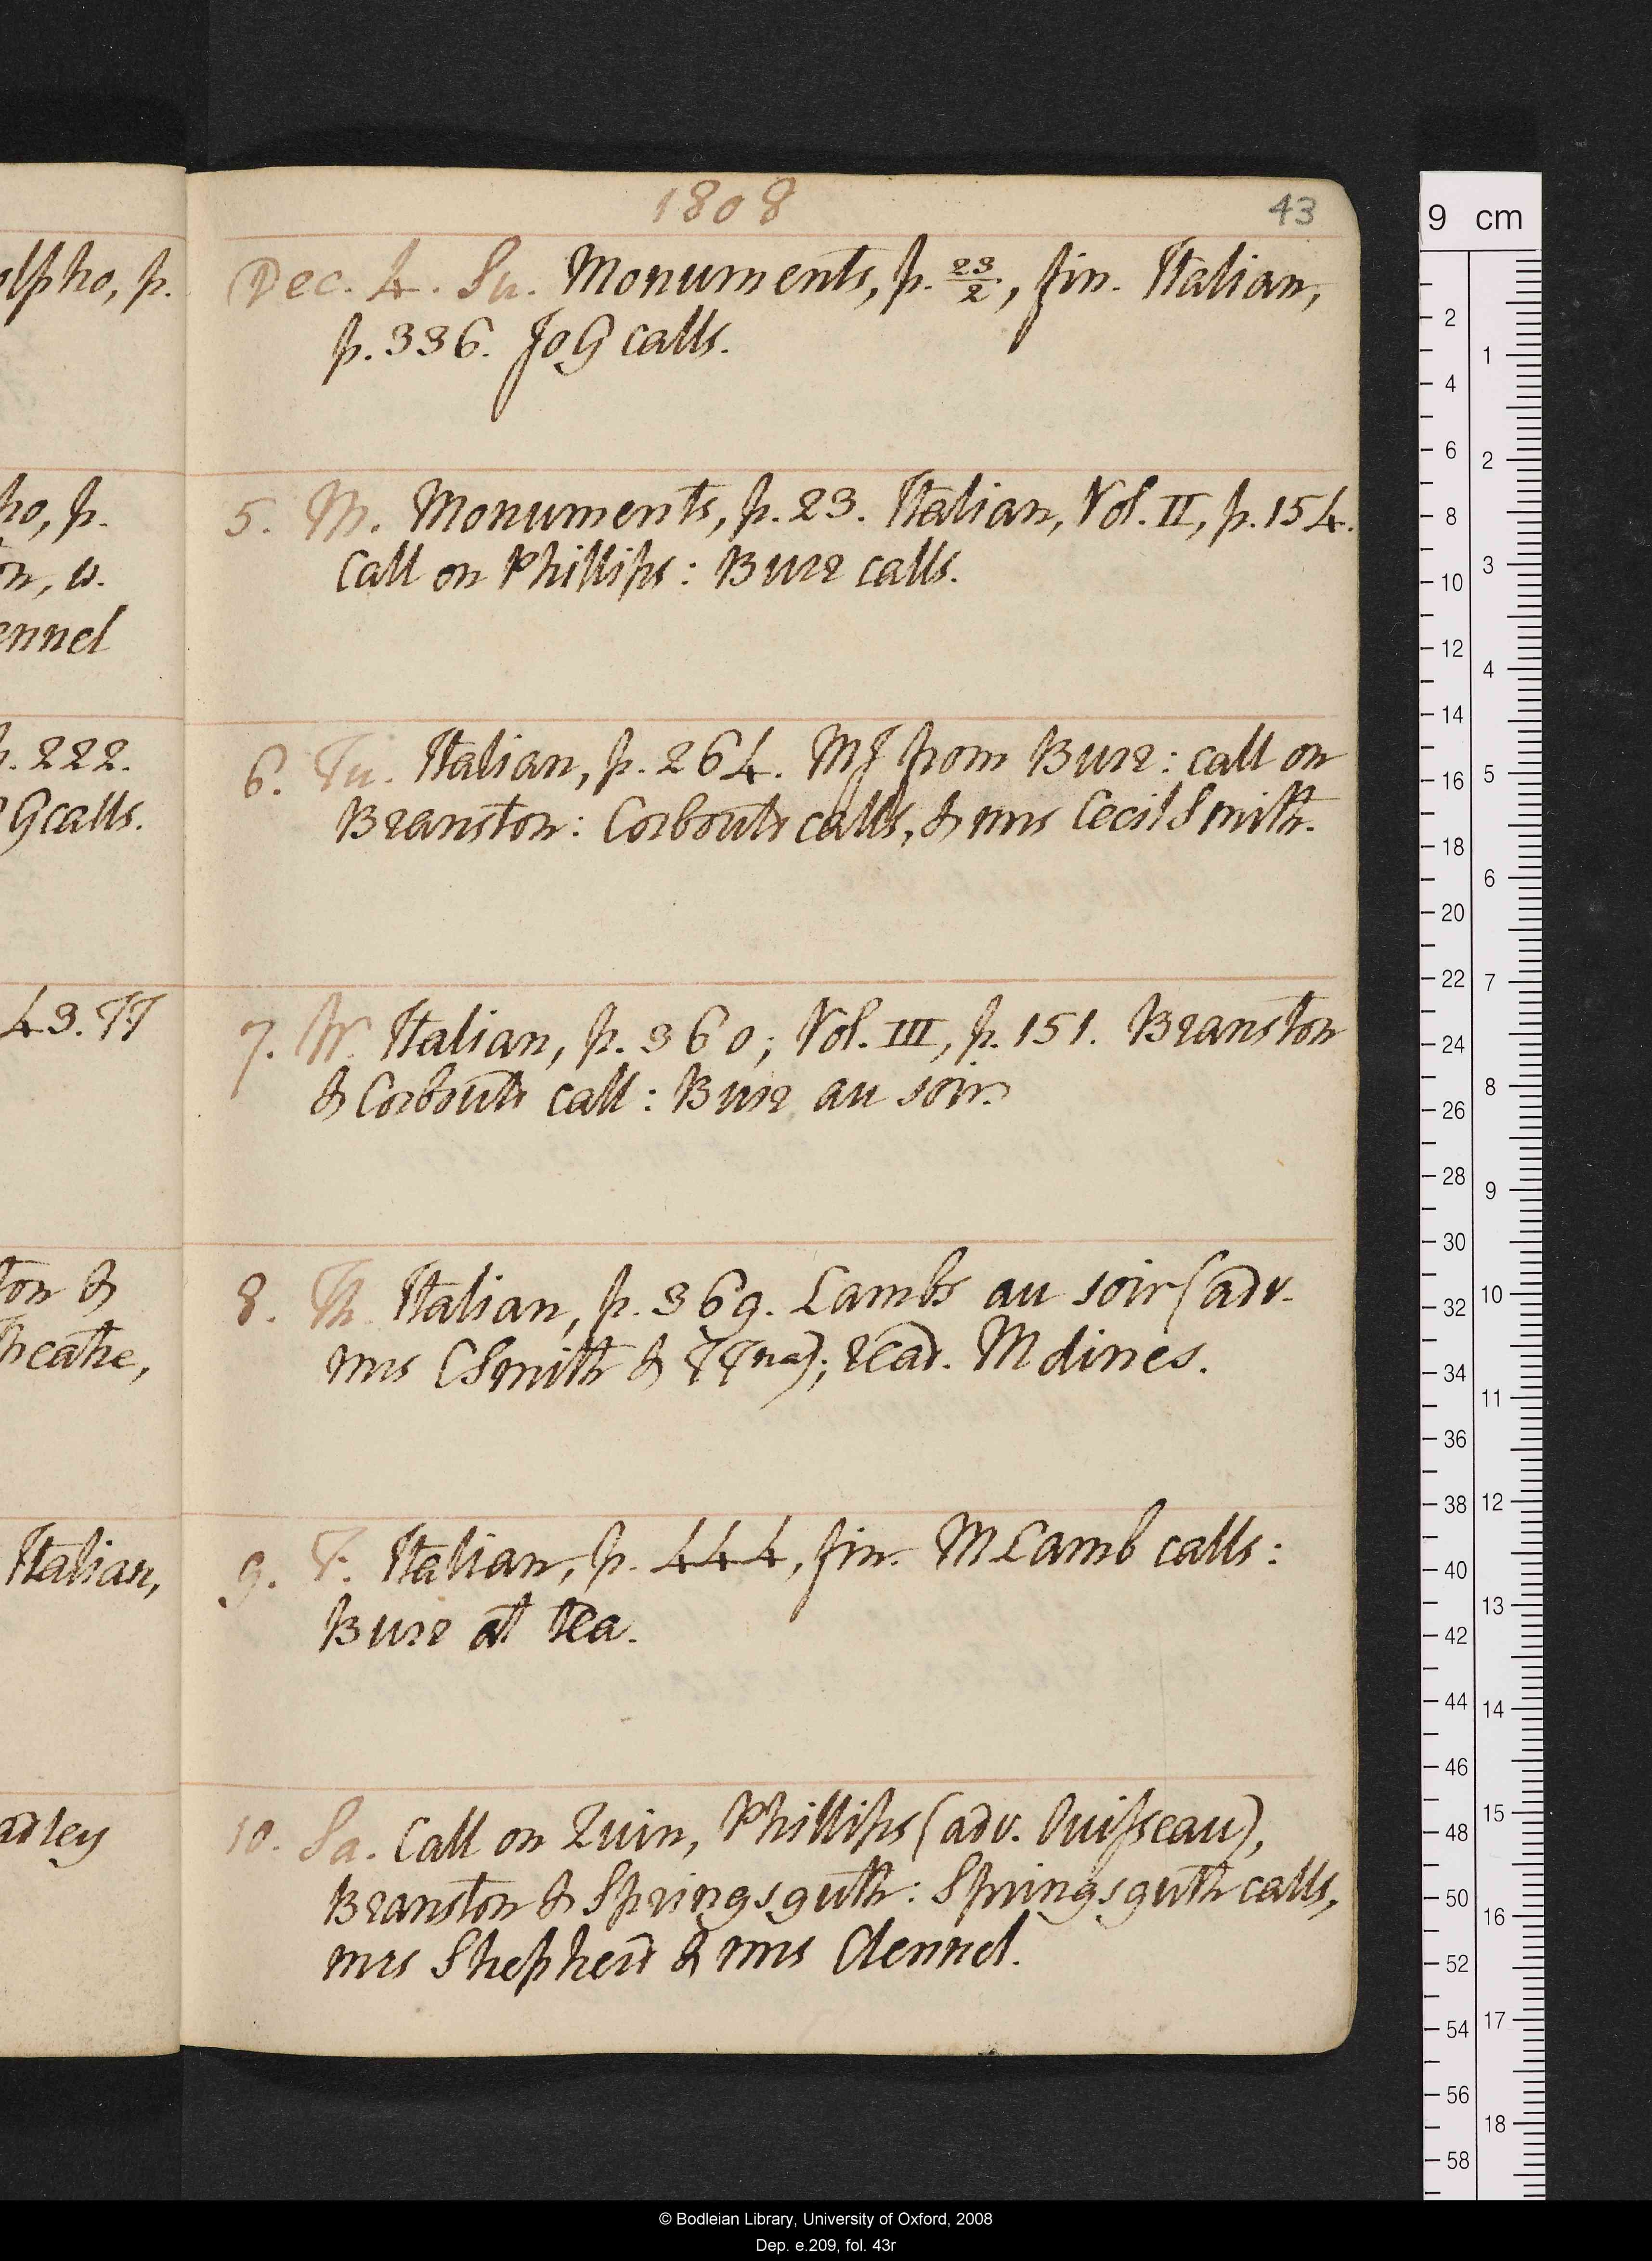 1808
43
Dec. 4. Su. Monuments, p. 23/2, fin. Italian,
p. 336. JoG calls.
5. M. Monuments, p. 23. Italian, Vol. II, p. 154.
Call on Phillips: Burr calls.
6. Tu. Italian, p. 264. MJ from Burr: call on
Branston: Corbould calls, & mrs Cecil Smith.
7. W. Italian, p. 360; Vol. III, p. 151. Branston
& Corbould call: Burr au soir.
8. Th. Italian, p. 369. Lambs au soir (adv.
mrs CSmith & TTna); read. M dines.
9. F. Italian, p. 444, fin. M Lamb calls:
Burr at tea.
10. Sa. Call on Quin, Phillips (adv. Ouisseau),
Branston & Springsguth: Springsguth calls,
mrs Shepherd & mrs Clennel.
olpho, p.
ho, p.
on, w.
ennel
p. 222.
G calls.
43. TT
ton &
heatre,
Italian,
adley
9 cm
2
4
6
8
10
12
14
16
18
20
22
24
26
28
30
32
34
36
38
40
42
44
46
48
50
52
54
56
58
1
2
3
4
5
6
7
8
9
10
11
12
13
14
15
16
17
18
© Bodleian Library, University of Oxford, 2008
Dep. e.209, fol. 43r